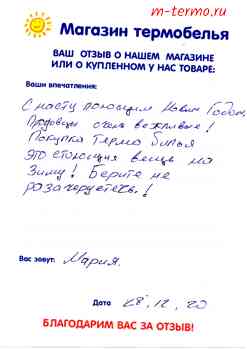 m-termo.ru
Магазин термобелья
ВАШ ОТЗЫВ О НАШЕМ МАГАЗИНЕ
ИЛИ О КУПЛЕННОМ У НАС ТОВАРЕ:
Ваши впечатления:
С насту пающим Новым Годом.
Продовцы очень вежливые!
Покупка термо билья
это стоющая вещь на
Зиму! Берите не
разачеруетесь!
Вас зовут: Мария.
Дата 28.12.20
БЛАГОДАРИМ ВАС ЗА ОТЗЫВ!